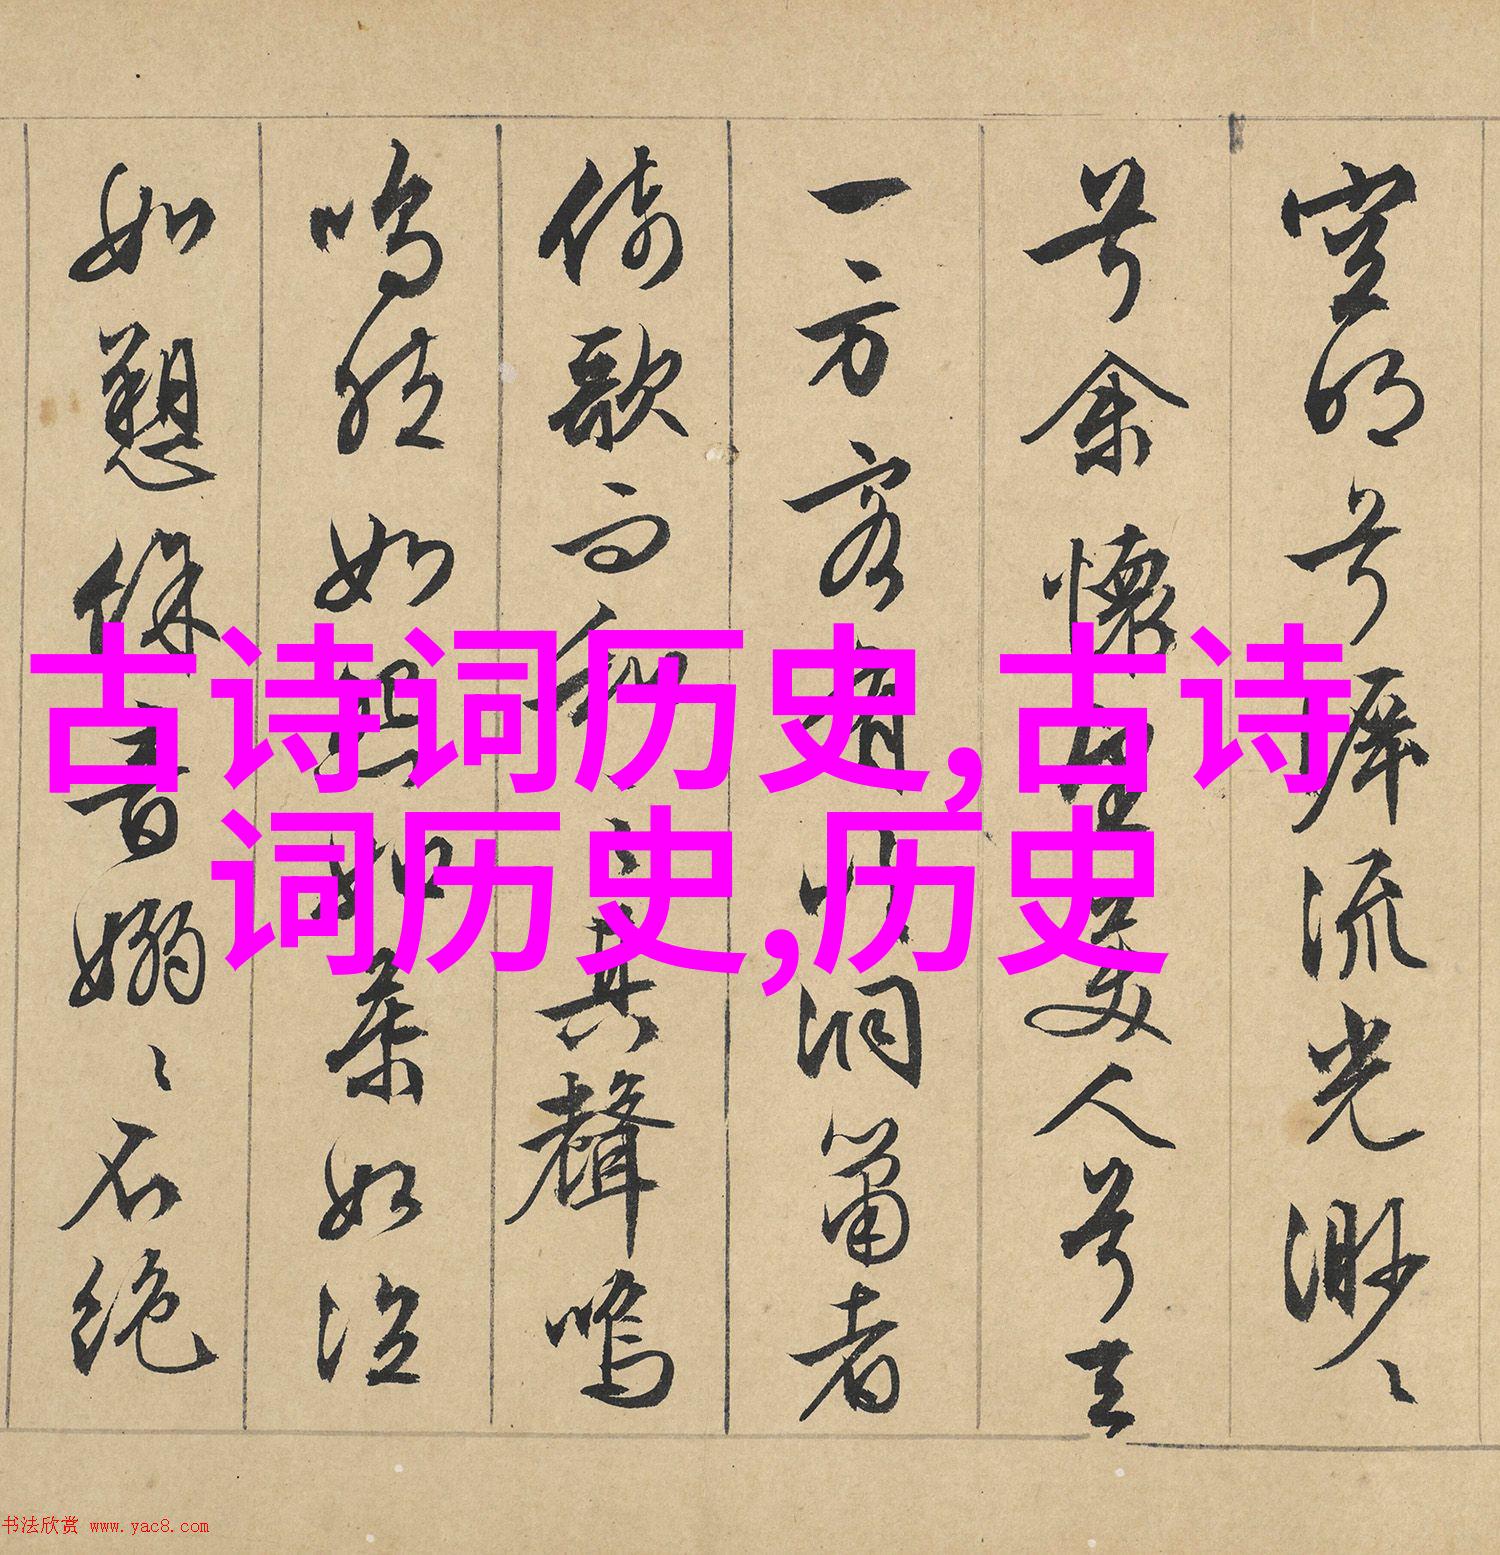 空明兮流光渺々
兮余懷望美人兮天
一方客有吹洞簫者
倚歌而和之其聲嗚
嗚然如怨如慕如泣
如愬餘音嫋々不絕
古诗词历史,古诗
词历史,历史
书法欣赏 www.yac8.com